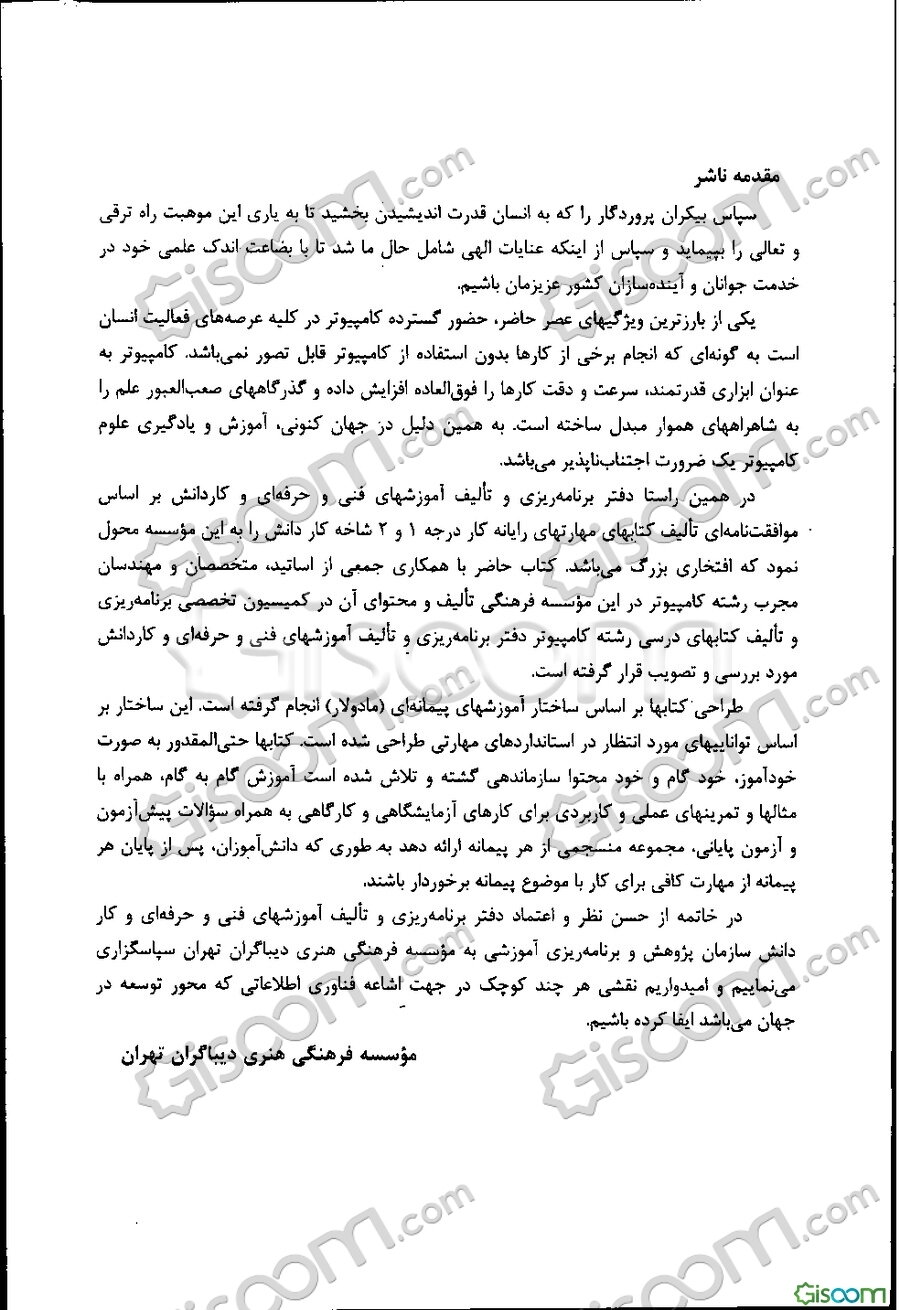 مقدمه ناشر
سپاس بیکران پروردگار را که به انسان قدرت اندیشیدن بخشید تا به یاری این موهبت راه ترقی
و تعالی را بپیماید و سپاس از اینکه عنایات الهی شامل حال ما شد تا با بضاعت اندک علمی خود در
خدمت جوانان و آینده‌سازان کشور عزیزمان باشیم.
یکی از بارزترین ویژگیهای عصر حاضر، حضور گسترده کامپیوتر در کلیه عرصه‌های فعالیت انسان
است به گونه‌ای که انجام برخی از کارها بدون استفاده از کامپیوتر قابل تصور نمی‌باشد. کامپیوتر به
عنوان ابزاری قدرتمند، سرعت و دقت کارها را فوق‌العاده افزایش داده و گذرگاههای صعب‌العبور علم را
به شاهراههای هموار مبدل ساخته است. به همین دلیل در جهان کنونی، آموزش و یادگیری علوم
کامپیوتر یک ضرورت اجتناب‌ناپذیر می‌باشد.
در همین راستا دفتر برنامه‌ریزی و تألیف آموزشهای فنی و حرفه‌ای و کاردانش بر اساس
موافقت‌نامه‌ای تألیف کتابهای مهارتهای رایانه کار درجه ۱ و ۲ شاخه کار دانش را به این مؤسسه محول
نمود که افتخاری بزرگ می‌باشد. کتاب حاضر با همکاری جمعی از اساتید، متخصصان و مهندسان
مجرب رشته کامپیوتر در این مؤسسه فرهنگی تألیف و محتوای آن در کمیسیون تخصصی برنامه‌ریزی
و تألیف کتابهای درسی رشته کامپیوتر دفتر برنامه‌ریزی و تألیف آموزشهای فنی و حرفه‌ای و کاردانش
مورد بررسی و تصویب قرار گرفته است.
طراحی کتابها بر اساس ساختار آموزشهای پیمانه‌ای (مادولار) انجام گرفته است. این ساختار بر
اساس تواناییهای مورد انتظار در استانداردهای مهارتی طراحی شده است. کتابها حتی‌المقدور به صورت
خودآموز، خود گام و خود محتوا سازماندهی گشته و تلاش شده است آموزش گام به گام، همراه با
مثالها و تمرینهای عملی و کاربردی برای کارهای آزمایشگاهی و کارگاهی به همراه سؤالات پیش‌آزمون
و آزمون پایانی، مجموعه منسجمی از هر پیمانه ارائه دهد به طوری که دانش‌آموزان، پس از پایان هر
پیمانه از مهارت کافی برای کار با موضوع پیمانه برخوردار باشند.
در خاتمه از حسن نظر و اعتماد دفتر برنامه‌ریزی و تألیف آموزشهای فنی و حرفه‌ای و کار
دانش سازمان پژوهش و برنامه‌ریزی آموزشی به مؤسسه فرهنگی هنری دیباگران تهران سپاسگزاری
می‌نماییم و امیدواریم نقشی هر چند کوچک در جهت اشاعه فناوری اطلاعاتی که محور توسعه در
جهان می‌باشد ایفا کرده باشیم.
مؤسسه فرهنگی هنری دیباگران تهران
Gisoom